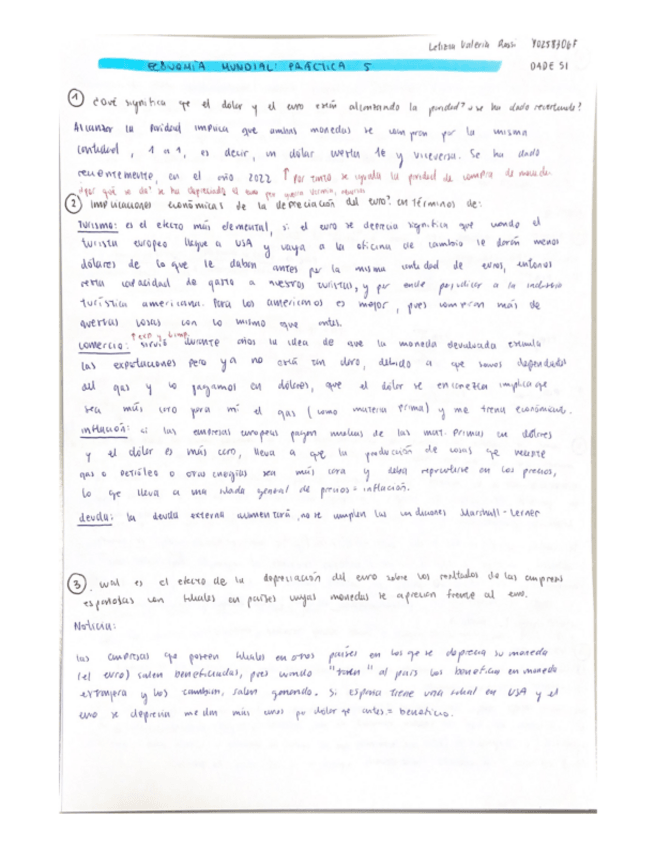 Letizia Valeria Rossi Y0258306F
ECONOMÍA MUNDIAL: PRÁCTICA 5 DADE 51
① ¿Qué significa qe el dolar y el euro están alcanzando la paridad? ¿se ha dado recientemente?
Alcanzar la Paridad implica que ambas monedas se compran por la misma
cantidad, 1 a 1, es decir, un dólar vuelta 1€ y viceversa. Se ha dado
recientemente, en el año 2022 ↑ Por tanto se iguala la paridad de compra de moneda.
¿por qué se da? se ha depreciado el euro por guerra Ucrania,
② Implicaciones económicas de la depreciación del euro? en términos de:
Turismo: es el efecto más elemental, si el euro se deprecia significa que cuando el
turista europeo llegue a USA y vaya a la oficina de cambio le darán menos
dólares de lo que le daban antes por la misma cantidad de euros, entonces
resta capacidad de gasto a nuestros turistas, y por ende perjudica a la industria
turística americana. Para los americanos es mejor, pues compran más de
nuestras cosas con lo mismo que antes.
↑ exp y ↓ imp.
Comercio: sirvió durante años la idea de que la moneda devaluada estimula
las exportaciones pero ya no está tan claro, debido a que somos dependientes
del gas y lo pagamos en dólares, que el dólar se encarezca implica qe
sea más caro para mí el gas (como materia prima) y me frena económicam.
inflación: si las empresas europeas pagan muchas de las mat. primas en dólares
y el dólar es más caro, lleva a que la producción de cosas qe necesite
gas o petróleo o otras energías sea más cara y deba repercutirse en los precios,
lo qe lleva a una subida general de precios = inflación.
deuda: la deuda externa aumentará, no se cumplen las condiciones Marshall-Lerner
③. Cuál es el efecto de la depreciación del euro sobre los resultados de las empresas
españolas con filiales en países cuyas monedas se aprecian frente al euro.
Noticia:
las empresas que poseen filiales en otros países en los qe se deprecia su moneda
(el euro) salen beneficiadas, pues cuando "traen" al país los beneficios en moneda
extranjera y los cambian, salen ganando. Si España tiene una filial en USA y el
euro se deprecia me dan más euros por dólar qe antes = beneficio.